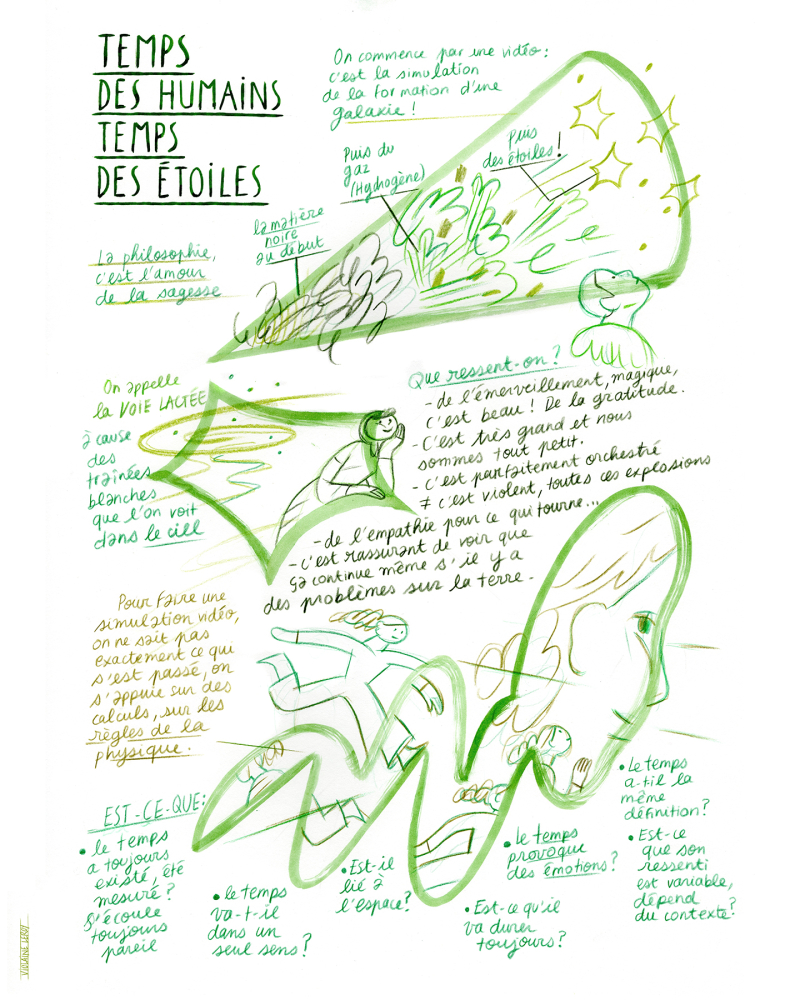 TEMPS
DES HUMAINS
TEMPS
DES ÉTOILES
On commence par une vidéo :
c'est la simulation
de la formation d'une
galaxie !
Puis du
gaz
(Hydrogène)
Puis
des étoiles !
la matière
noire
au début
La philosophie,
c'est l'amour
de la sagesse
On appelle
la VOIE LACTÉE
à cause
des
traînées
blanches
que l'on voit
dans le ciel
Que ressent-on ?
- de l'émerveillement, magique,
c'est beau ! De la gratitude.
- C'est très grand et nous
sommes tout petit.
- c'est parfaitement orchestré
≠ c'est violent, toutes ces explosions
- de l'empathie pour ce qui tourne...
- c'est rassurant de voir que
ça continue même s'il y a
des problèmes sur la terre.
Pour faire une
simulation vidéo,
on ne sait pas
exactement ce qui
s'est passé, on
s'appuie sur des
calculs, sur les
règles de la
physique.
EST-CE-QUE :
• le temps
a toujours
existé, été
mesuré ?
S'écoule
toujours
pareil
• le temps
va-t-il
dans un
seul sens ?
• Est-il
lié à
l'espace ?
• le temps
provoque
des émotions ?
• Est-ce qu'il
va durer
toujours ?
• Le temps
a-til la
même
définition ?
• Est-ce
que son
ressenti
est variable,
dépend
du contexte ?
VIOLAINE LEROY